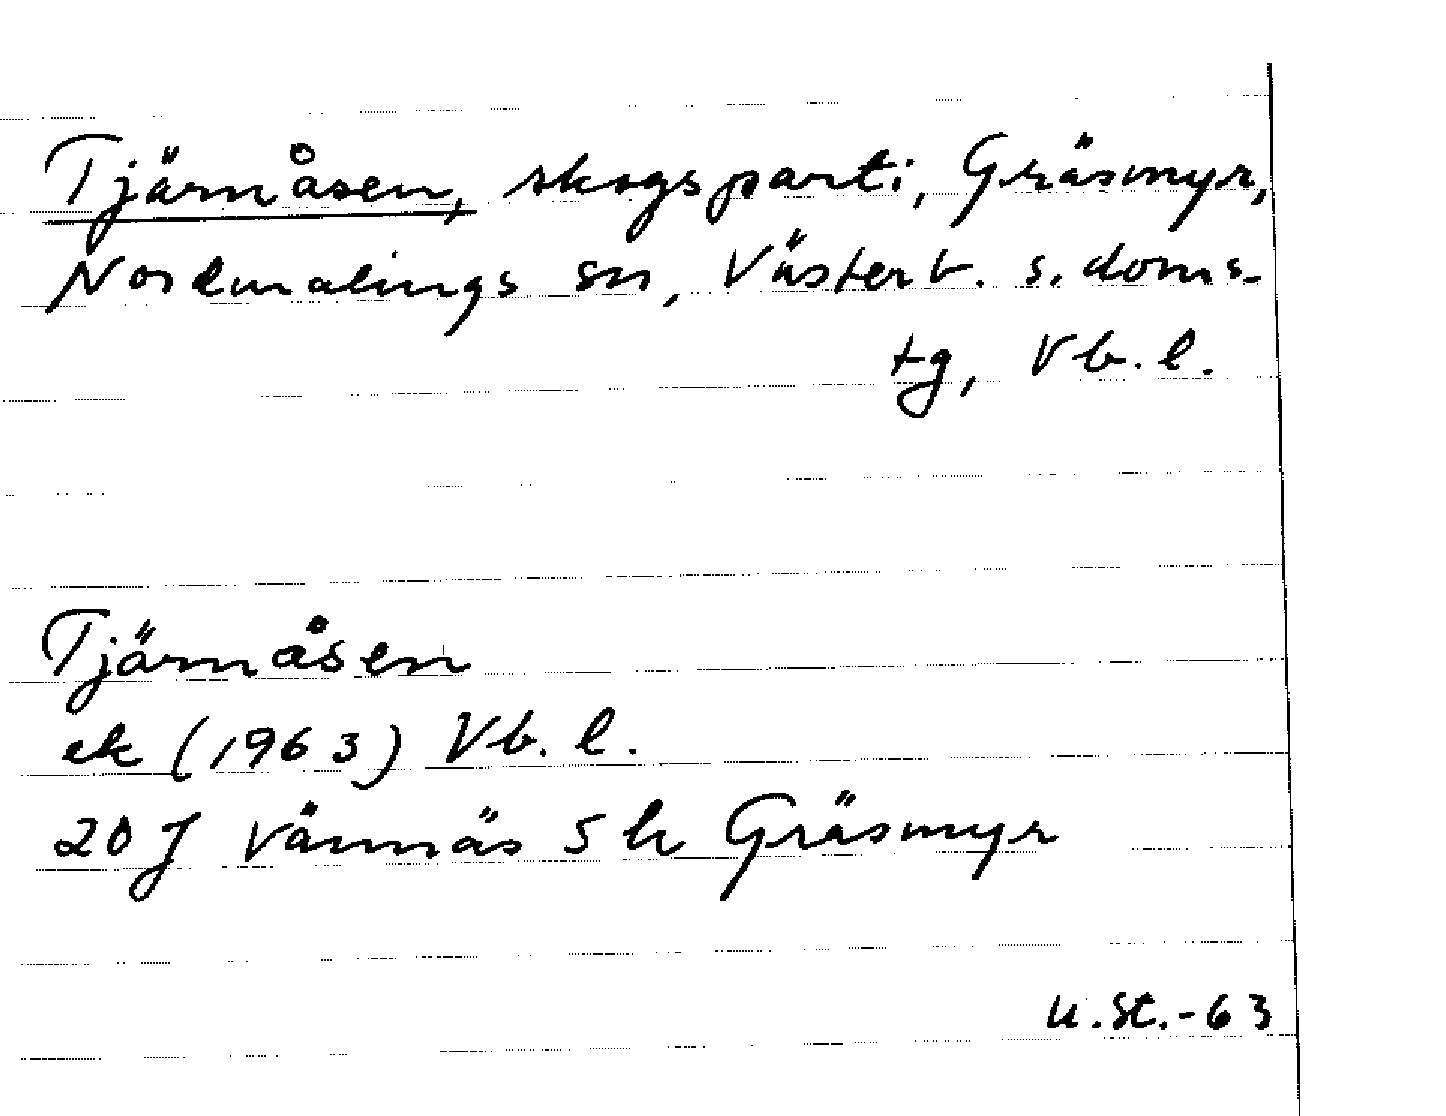 Tjärnåsen, skogsparti, Gräsmyr,
Nordmalings sn, Västerb. s. doms-
tg, Vb. l.
Tjärnåsen
ek (1963) Vb. l.
20 J Vännäs 5 h Gräsmyr
U.St.-63